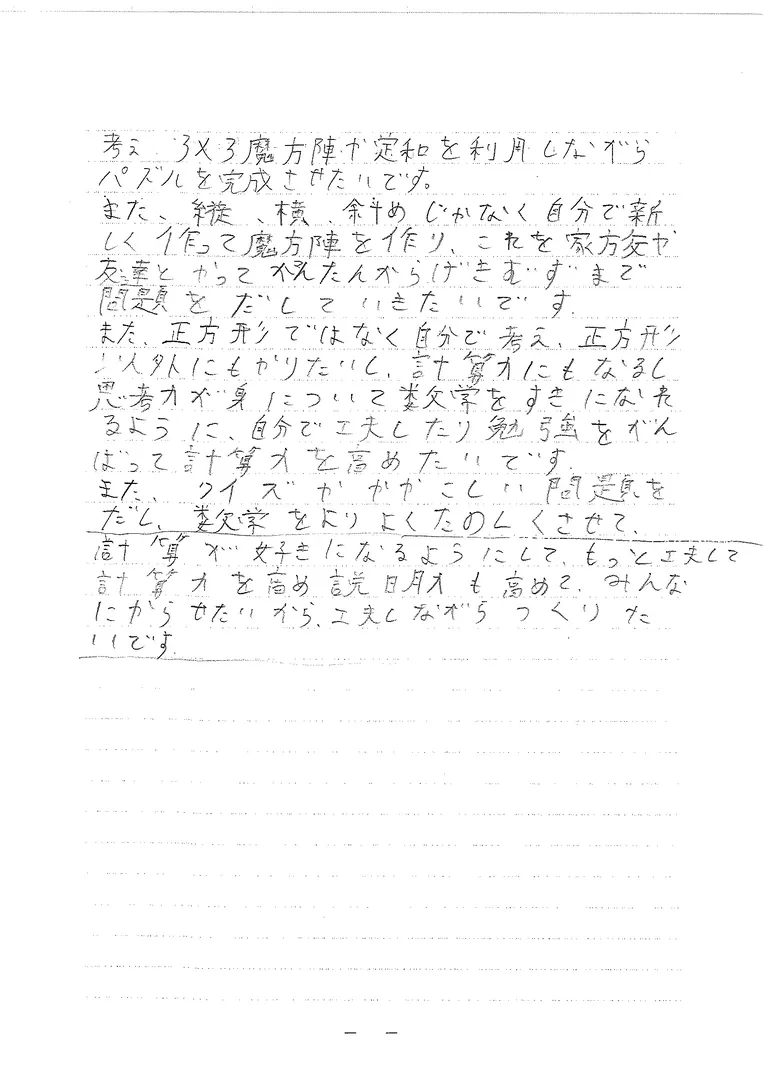 考え 3×3魔方陣や定和を利用しながら
パズルを完成させたいです。
また、縦、横、斜めじかなく自分で新
しく作って魔方陣を作り、これを家方交や
友達とやってかんたんからげきむずまで
問題をだしていきたいです。
また、正方形ではなく自分で考え、正方形
以外にもやりたいし、計算力にもなるし
思考力が身について数学をすきになれ
るように、自分で工夫したり勉強をがん
ばって計算力を高めたいです。
また、クイズや かこしい問題を
だし、数学をよりよくたのしくさせて、
計算が好きになるようにして、もっと工夫して
計算力を高め説明力も高めて、みんな
にやらせたいから、工夫しながらつくりた
いです。